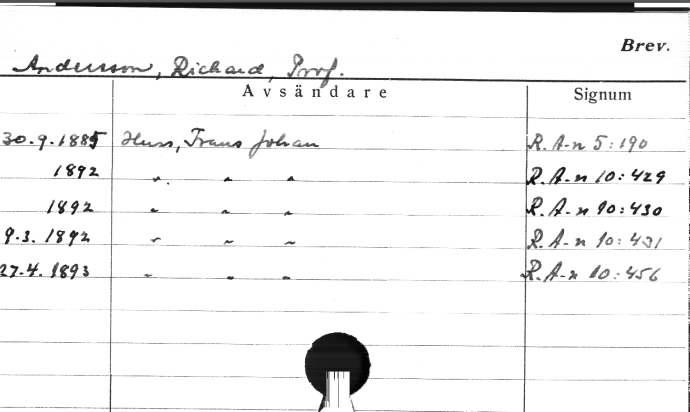 Brev.
Andersson, Richard, Prof.
Avsändare Signum
30.9.1885 Huss, Frans Johan R. A-n 5:190
1892 " " " R. A-n 10:429
1892 " " " R. A-n 10:430
9.3. 1892 " " " R. A-n 10:431
27.4. 1893 " " " R. A-n 10:456